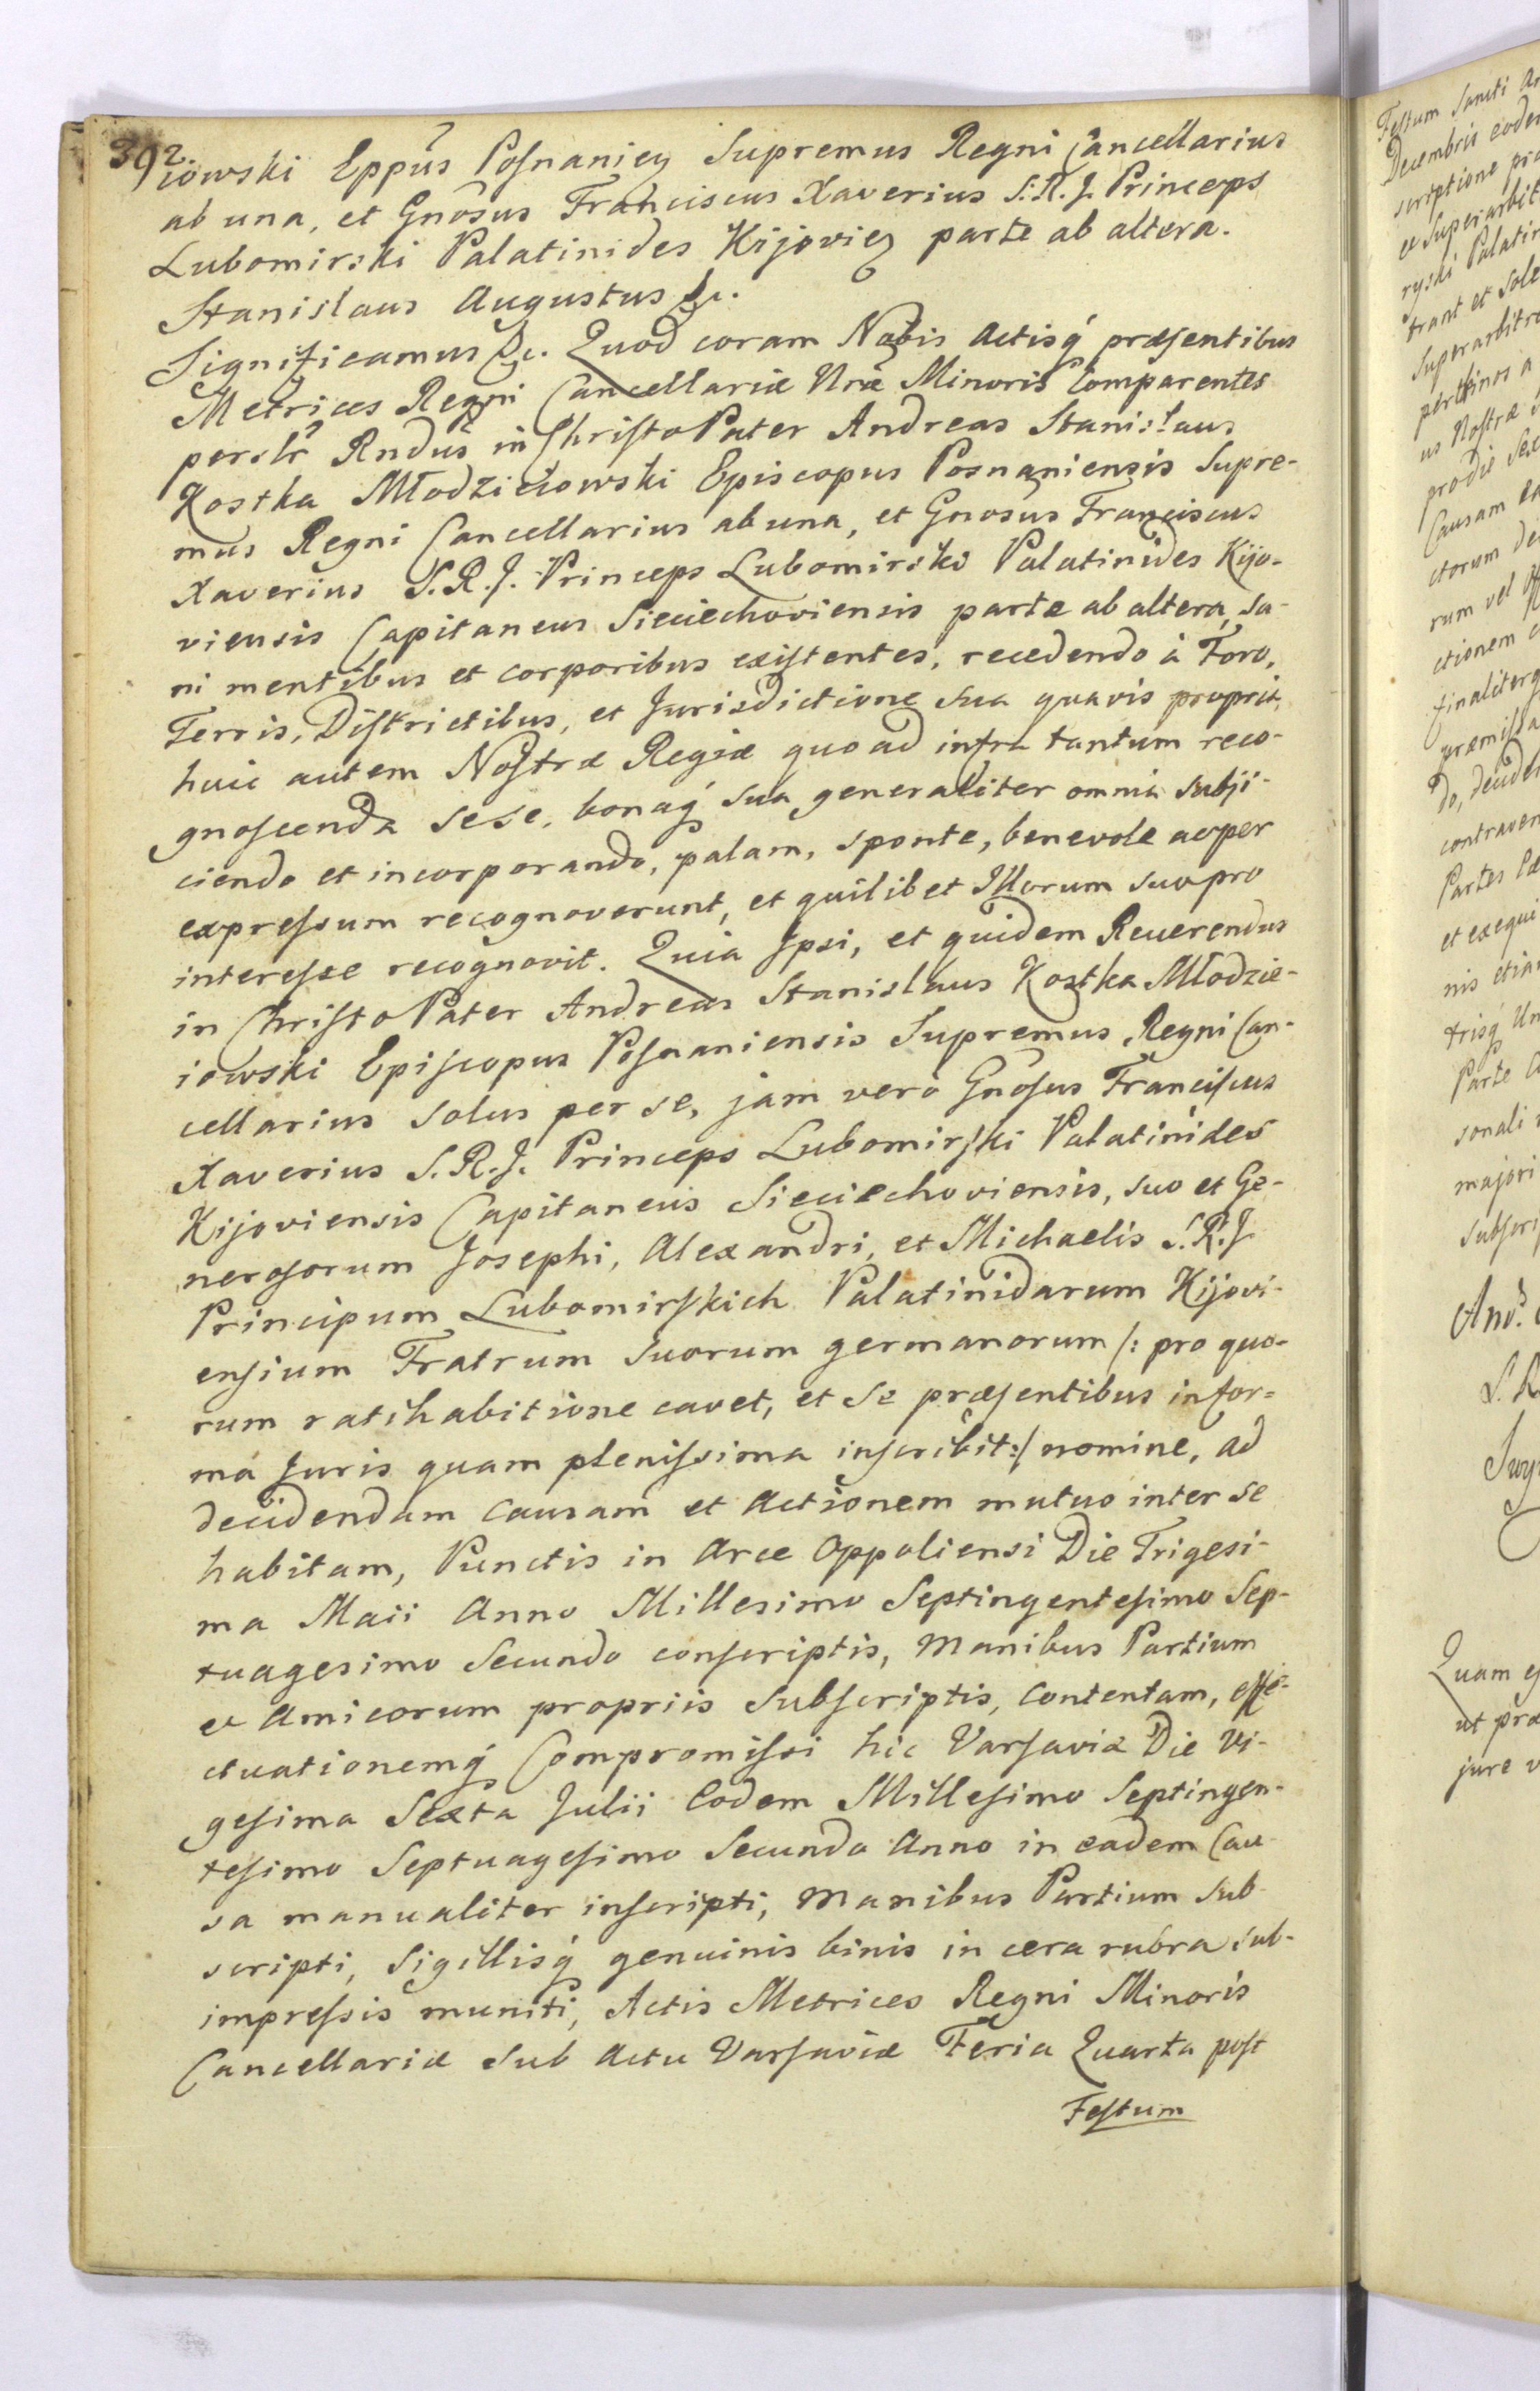 392.
iowski Eppūs Posnanien Supremus Regni Cancellarius
ab una, et Gnosus Franciscus Xaverius S.R.J. Princeps
Lubomirski Palatinides Kijovien parte ab altera.
Stanislaus Augustus &c.
Significamus &c. Quod coram Nobis Actisq́ præsentibus
Metrices Regni Cancellariæ Nræ Minoris Comparentes
perslr Rndus in Christo Pater Andreas Stanislaus
Kostka Młodzieiowski Episcopus Posnaniensis Supre-
mus Regni Cancellarius ab una, et Gnosus Franciscus
Xaverius S.R.J. Princeps Lubomirski Palatinides Kijo-
viensis Capitaneus Sieciechoviensis parte ab altera, sa-
ni mentibus et corporibus existentes, recedendo à Foro,
Terris, Districtibus, et Jurisdictione sua quavis propria,
huic autem Nostræ Regiæ quo ad infra tantum reco-
gnoscenda sese, bonaq́ sua generaliter omnia subji-
ciendo et incorporando, palam, sponte, benevole ac per
expressum recognoverunt, et quilibet Illorum suo pro
interesse recognovit. Quia Ipsi, et quidem Reverendus
in Christo Pater Andreas Stanislaus Kostka Młodzie-
iowski Episcopus Posnaniensis Supremus Regni Can-
cellarius solus per se, jam vero Gnosus Franciscus
Xaverius S.R.J. Princeps Lubomirski Palatinides
Kijoviensis Capitaneus Sieciechoviensis, suo et Ge-
nerosorum Josephi, Alexandri, et Michaelis S.R.J.
Principum Lubomirskich Palatinidarum Kijovi-
ensium Fratrum suorum germanorum /: pro quo-
rum ratihabitione cavet, et se præsentibus in for=
ma Juris quam plenissima inscribit :/ nomine, ad
decidendam causam et actionem mutuo inter se
habitam, Punctis in Arce Oppoliensi Die Trigesi-
ma Maii Anno Millesimo Septingentesimo Sep-
tuagesimo Secundo conscriptis, manibus Partium
et Amicorum propriis subscriptis, contentam, effe-
ctuationemq́ Compromissi hic Varsaviæ Die Vi-
gesima Sexta Julii Eodem Millesimo Septingen-
tesimo Septuagesimo Secundo Anno in eadem Cau-
sa manualiter inscripti, manibus Partium sub-
scripti, sigillisq́ genuinis binis in cera rubra sub-
impressis muniti, Actis Metrices Regni Minoris
Cancellariæ sub actu Varsaviæ Feria Quarta post
Festum
Festum Sancti
Decembris
scriptione
et Superarbit
ryski Palatin
trant et sole
Superarbitr
us Nostræ
prodie
Causam
ctorum
rum vel
ctionem
finaliterq
præmissa
do, decide
contraven
Partes
et exequi
nis etia
trisq́
Parte
sonali
majori
subscri
S.R
Quam
ut præ
jure v